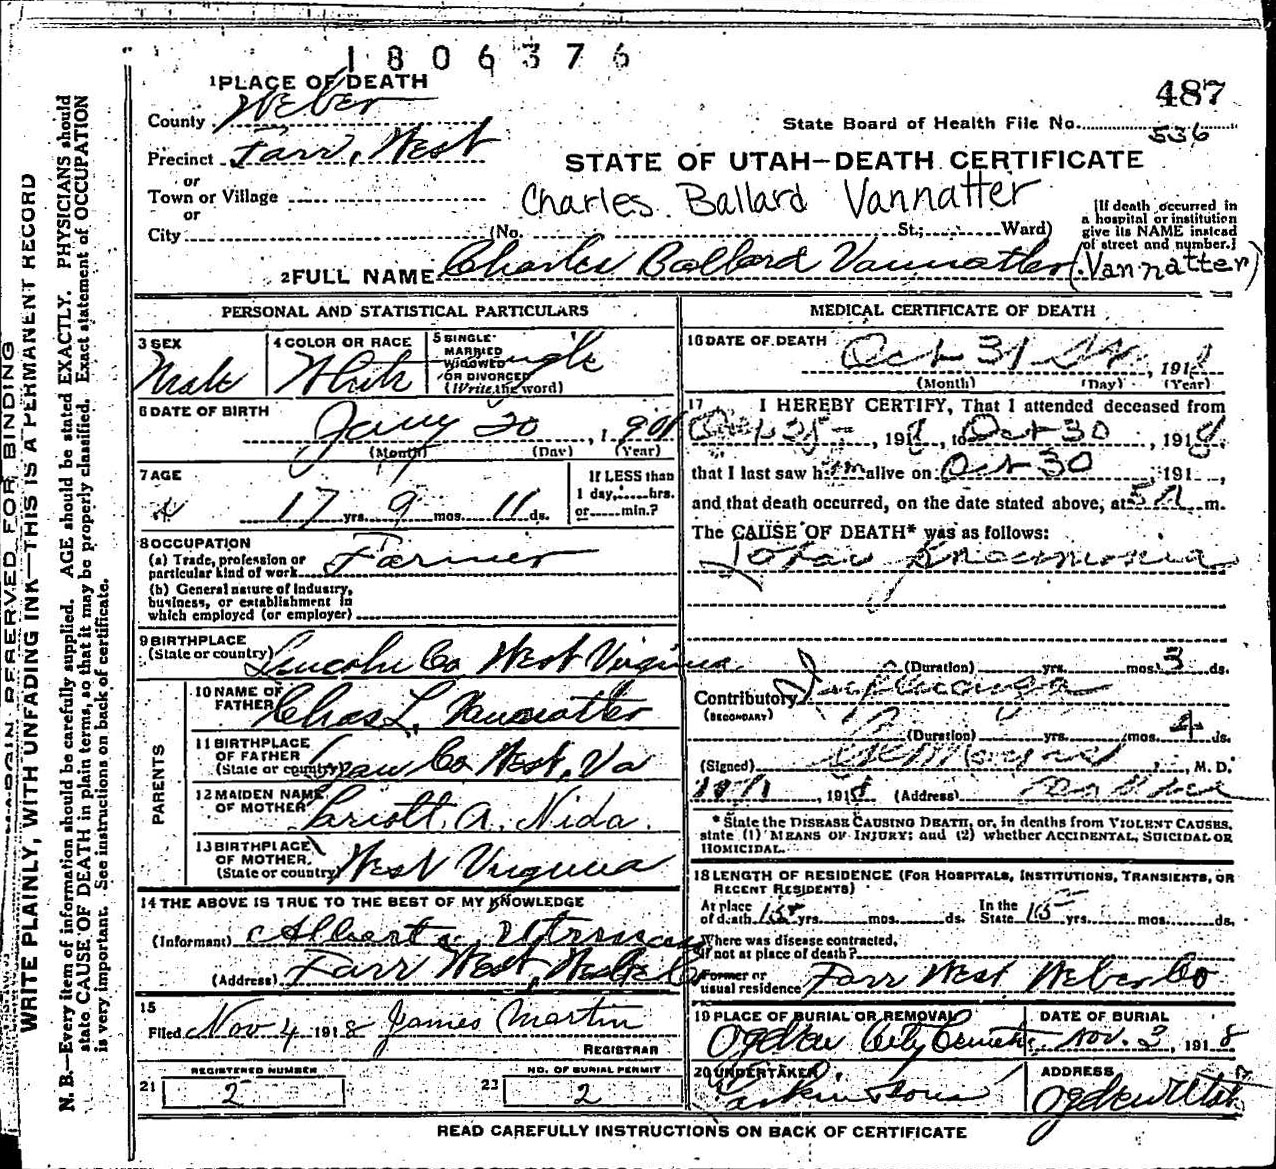 1806376
1 PLACE OF DEATH
487
County Weber
State Board of Health File No. 536
Precinct Farr, West
STATE OF UTAH—DEATH CERTIFICATE
or
Town or Village
Charles Ballard Vannatter
or
City (No. St.; Ward)
[If death occurred in
a hospital or institution
give its NAME instead
of street and number.]
2 FULL NAME Charles Ballard Vannatter (Vannatter)
PERSONAL AND STATISTICAL PARTICULARS
3 SEX Male
4 COLOR OR RACE White
5 SINGLE
MARRIED
WIDOWED
OR DIVORCED
(Write the word) Single
6 DATE OF BIRTH
Jany 20, 1901
(Month) (Day) (Year)
7 AGE
17 yrs. 9 mos. 11 ds.
If LESS than
1 day, hrs.
or min.?
8 OCCUPATION
(a) Trade, profession or
particular kind of work Farmer
(b) General nature of industry,
business, or establishment in
which employed (or employer)
9 BIRTHPLACE
(State or country) Lincoln Co West Virginia
PARENTS
10 NAME OF
FATHER Chas L. Vannatter
11 BIRTHPLACE
OF FATHER
(State or country) Co West, Va
12 MAIDEN NAME
OF MOTHER A. Nida
13 BIRTHPLACE
OF MOTHER
(State or country) West Virginia
14 THE ABOVE IS TRUE TO THE BEST OF MY KNOWLEDGE
(Informant) Albert
(Address) Farr West, Weber Co
15
Filed Nov 4 1918 James Martin
REGISTRAR
21 REGISTERED NUMBER
2
22 NO. OF BURIAL PERMIT
2
MEDICAL CERTIFICATE OF DEATH
16 DATE OF DEATH
Oct 31, 1918
(Month) (Day) (Year)
17 I HEREBY CERTIFY, That I attended deceased from
, 1918, to Oct 30, 1918
that I last saw him alive on Oct 30 191 ,
and that death occurred, on the date stated above, at 5 A m.
The CAUSE OF DEATH* was as follows:
Lobar Pneumonia
(Duration) yrs. mos. 3 ds.
Contributory Influenza
(SECONDARY)
(Duration) yrs. mos. 4 ds.
(Signed) , M. D.
, 1918 (Address)
* State the DISEASE CAUSING DEATH, or, in deaths from VIOLENT CAUSES,
state (1) MEANS OF INJURY; and (2) whether ACCIDENTAL, SUICIDAL OR
HOMICIDAL.
18 LENGTH OF RESIDENCE (FOR HOSPITALS, INSTITUTIONS, TRANSIENTS, OR
RECENT RESIDENTS)
At place
of death 15 yrs. mos. ds.
In the
State 15 yrs. mos. ds.
Where was disease contracted,
if not at place of death?
Former or
usual residence Farr West Weber Co
19 PLACE OF BURIAL OR REMOVAL
Ogden City
DATE OF BURIAL
Nov. 2, 1918
20 UNDERTAKER
Larkin & Sons
ADDRESS
Ogden Utah
READ CAREFULLY INSTRUCTIONS ON BACK OF CERTIFICATE
MARGIN RESERVED FOR BINDING
WRITE PLAINLY, WITH UNFADING INK—THIS IS A PERMANENT RECORD
N. B.—Every item of information should be carefully supplied. AGE should be stated EXACTLY. PHYSICIANS should
state CAUSE OF DEATH in plain terms, so that it may be properly classified. Exact statement of OCCUPATION
is very important. See instructions on back of certificate.